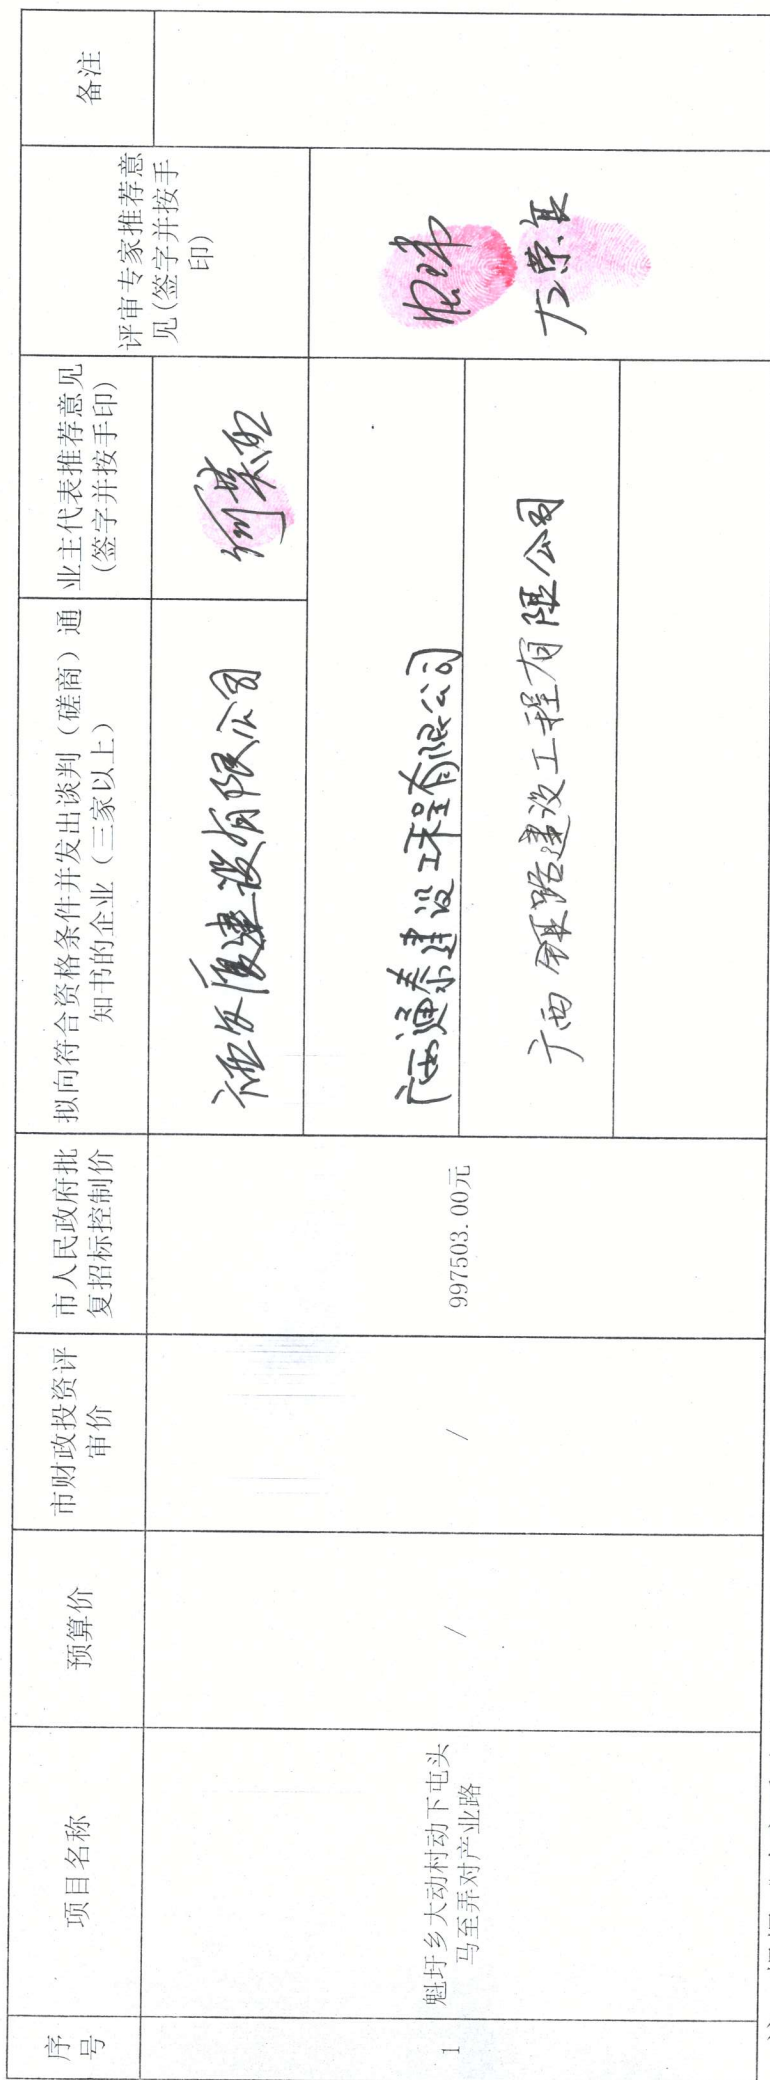 序
号
项目名称
预算价
市财政投资评
审价
市人民政府批
复招标控制价
拟向符合资格条件并发出谈判（磋商）通
知书的企业（三家以上）
业主代表推荐意见
(签字并按手印)
评审专家推荐意
见(签字并按手
印)
备注
1
魁圩乡大动村动下屯头
马至弄对产业路
/
/
997503.00元
建设有限公司
广西通泰建设工程有限公司
广西领路建设工程有限公司